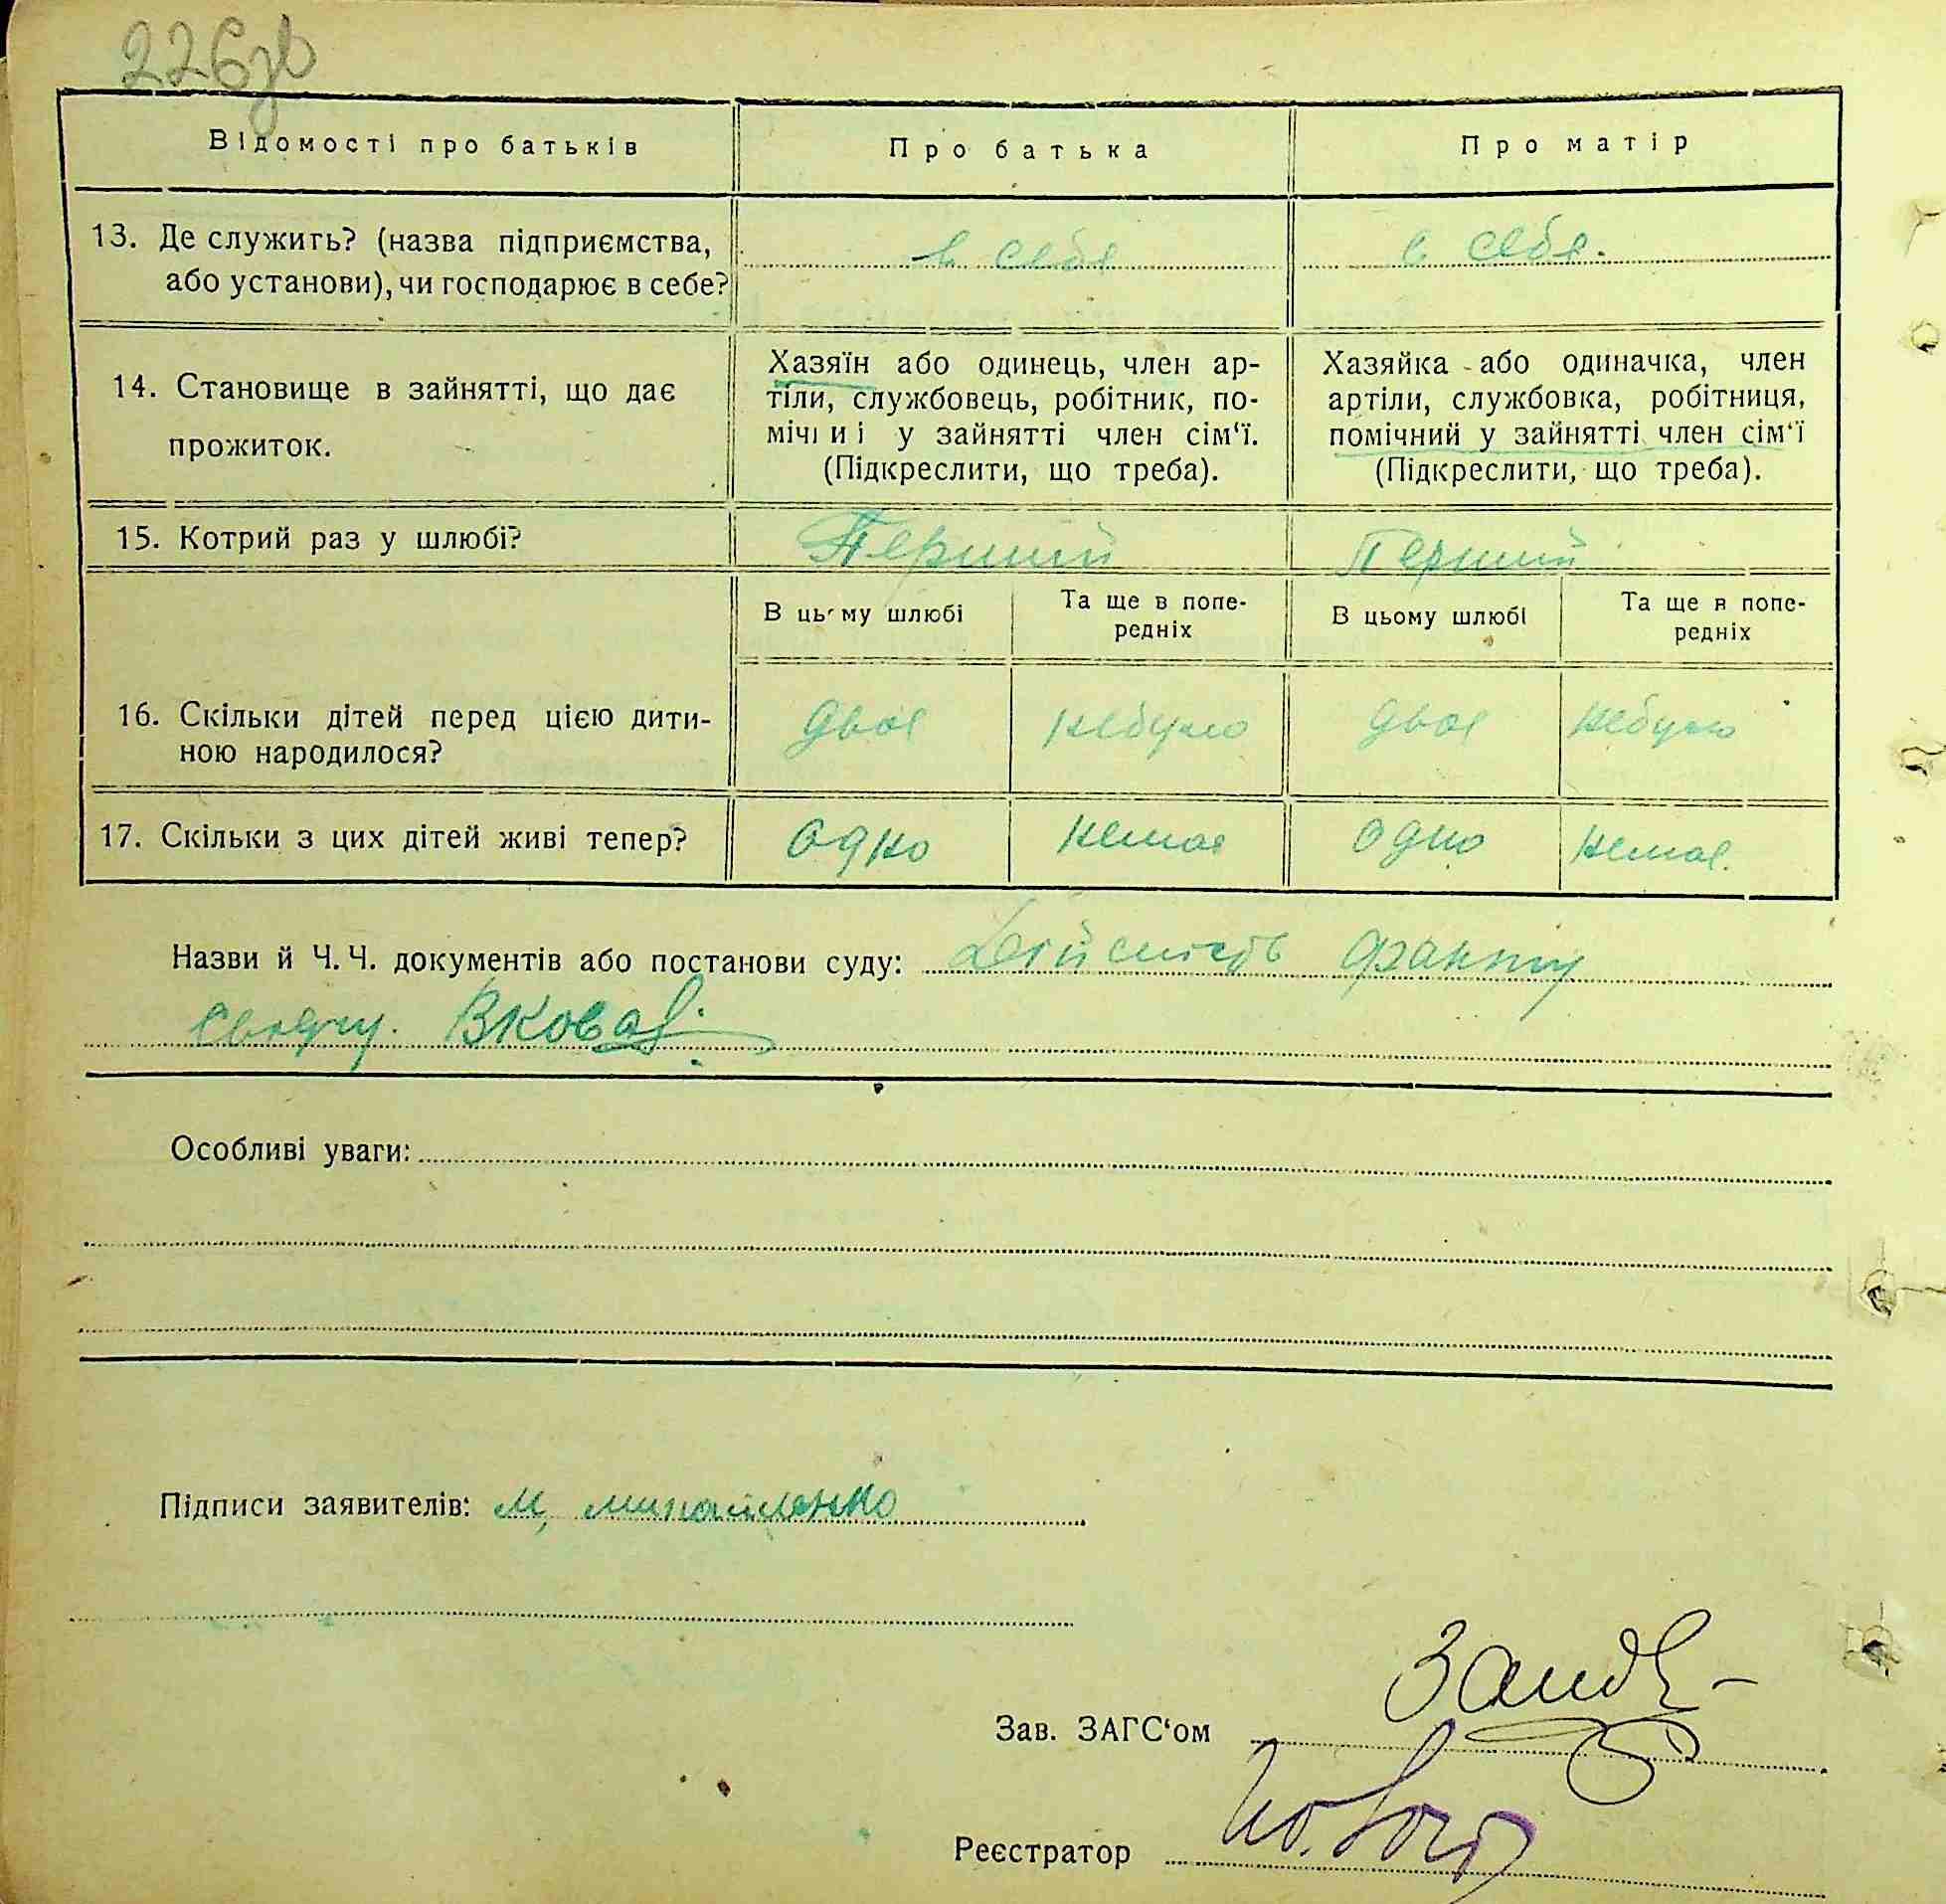 226зв
Відомості про батьків
Про батька
Про матір
13. Де служить? (назва підприємства,
або установи), чи господарює в себе?
в себе
в себе.
14. Становище в зайнятті, що дає
прожиток.
Хазяїн або одинець, член ар-
тіли, службовець, робітник, по-
мічниі у зайнятті член сім‘ї.
(Підкреслити, що треба).
Хазяйка або одиначка, член
артіли, службовка, робітниця,
помічний у зайнятті член сім‘ї
(Підкреслити, що треба).
15. Котрий раз у шлюбі?
Перший
Перший
В цьому шлюбі
Та ще в попе-
редніх
В цьому шлюбі
Та ще в попе-
редніх
16. Скільки дітей перед цією дити-
ною народилося?
двоє
небуло
двоє
небуло
17. Скільки з цих дітей живі тепер?
одно
немає
одно
немає.
Назви й Ч. Ч. документів або постанови суду: Дейсність факту
свідчу.
Особливі уваги:
Підписи заявителів: М. Михайленко
Зав. ЗАГС‘ом
Реєстратор